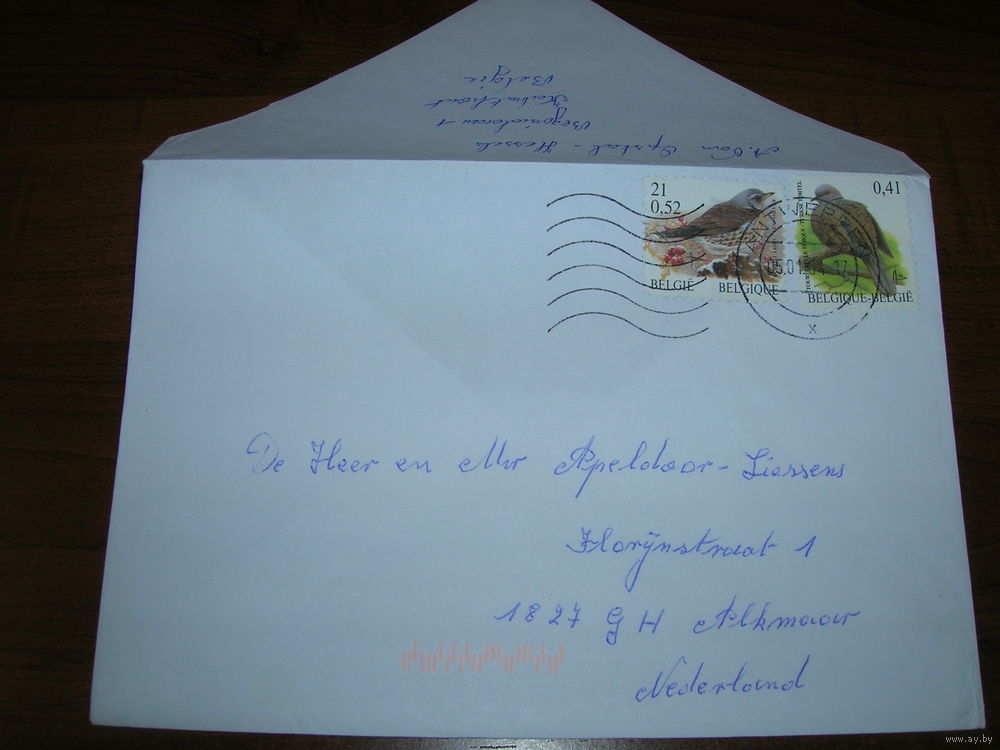 A. Van Opstal - Hessels
Begonialaan 1
Kalmthout
België
21
0,52
BELGIË BELGIQUE
0,41
BELGIQUE-BELGIË
ANTWERPEN
X
De Heer en Mw Apeldoor-Liassens
Florijnstraat 1
1827 GH Alkmaar
Nederland
www.ay.by